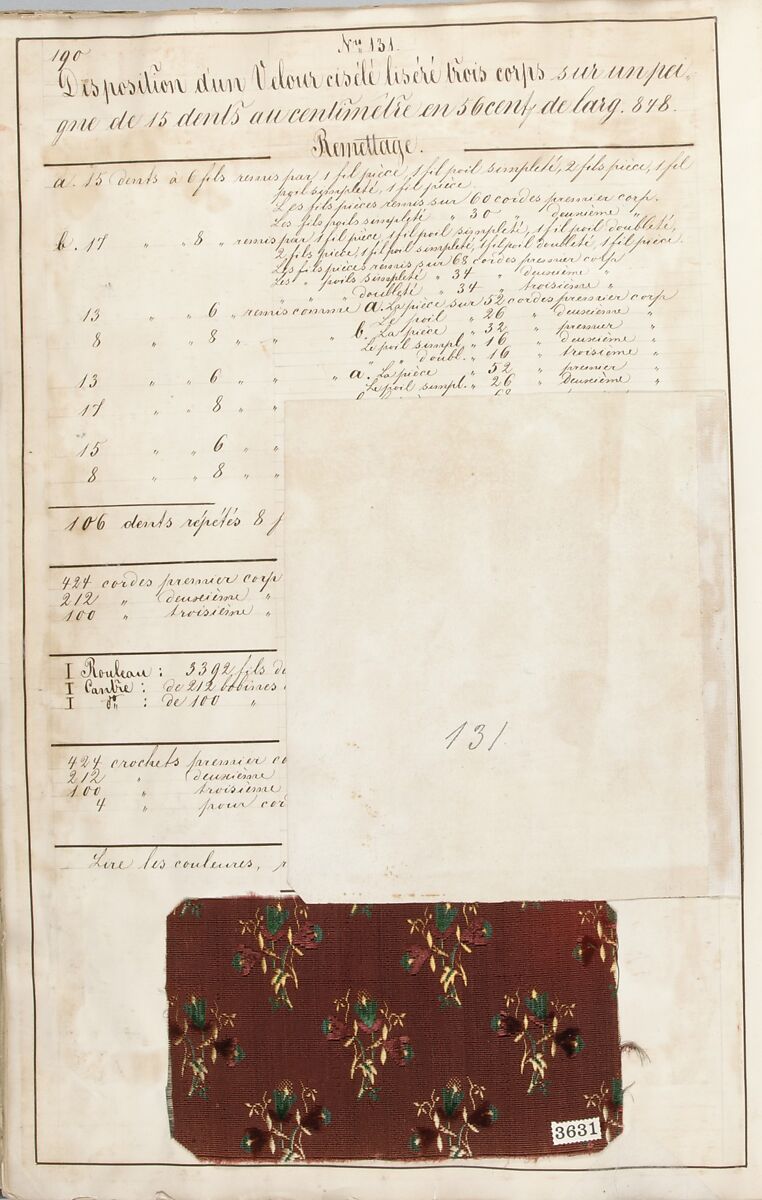 190
Nro 131.
Disposition d'un Velour ciselé liséré trois corps sur un pei-
gne de 15 dents au centimètre en 56 cent, de larg. 848.
Remettage.
a. 15 dents à 6 fils remis par 1 fil pièce, 1 fil poil simpleté, 2 fils pièce, 1 fil
poil simpleté, 1 fil pièce.
Les fils pièces remis sur 60 cordes premier corp.
Les fils poils simpleté " 30 " deuxième "
b. 17 " " 8 " remis par 1 fil pièce, 1 fil poil simpleté, 1 fil poil doubleté,
2 fils pièce, 1 fil poil simpleté, 1 fil poil doubleté, 1 fil pièce.
Les fils pièces remis sur 68 cordes premier corp
Les " poils simpleté " 34 " deuxième "
" " doubleté " 34 " troisième "
13 " " 6 " remis comme a. La pièce sur 52 cordes premier corp
Le poil " 26 " deuxième "
8 " " 8 " " " b. La pièce " 32 " premier "
Le poil simpl. " 16 " deuxième "
" " doubl. " 16 " troisième "
13 " " 6 " " " a. La pièce " 52 " premier "
Le poil simpl. " 26 " deuxième "
17 " " 8 " "
15 " " 6 " "
8 " " 8 " "
106 dents répétés 8 f
424 cordes premier corp
212 " deuxième "
100 " troisième "
I Rouleau : 3392 fils de
I Cantre : de 212 bobines
I do : de 100 "
424 crochets premier co
212 " deuxième
100 " troisième
4 " pour cor
Lire les couleures,
131
3631